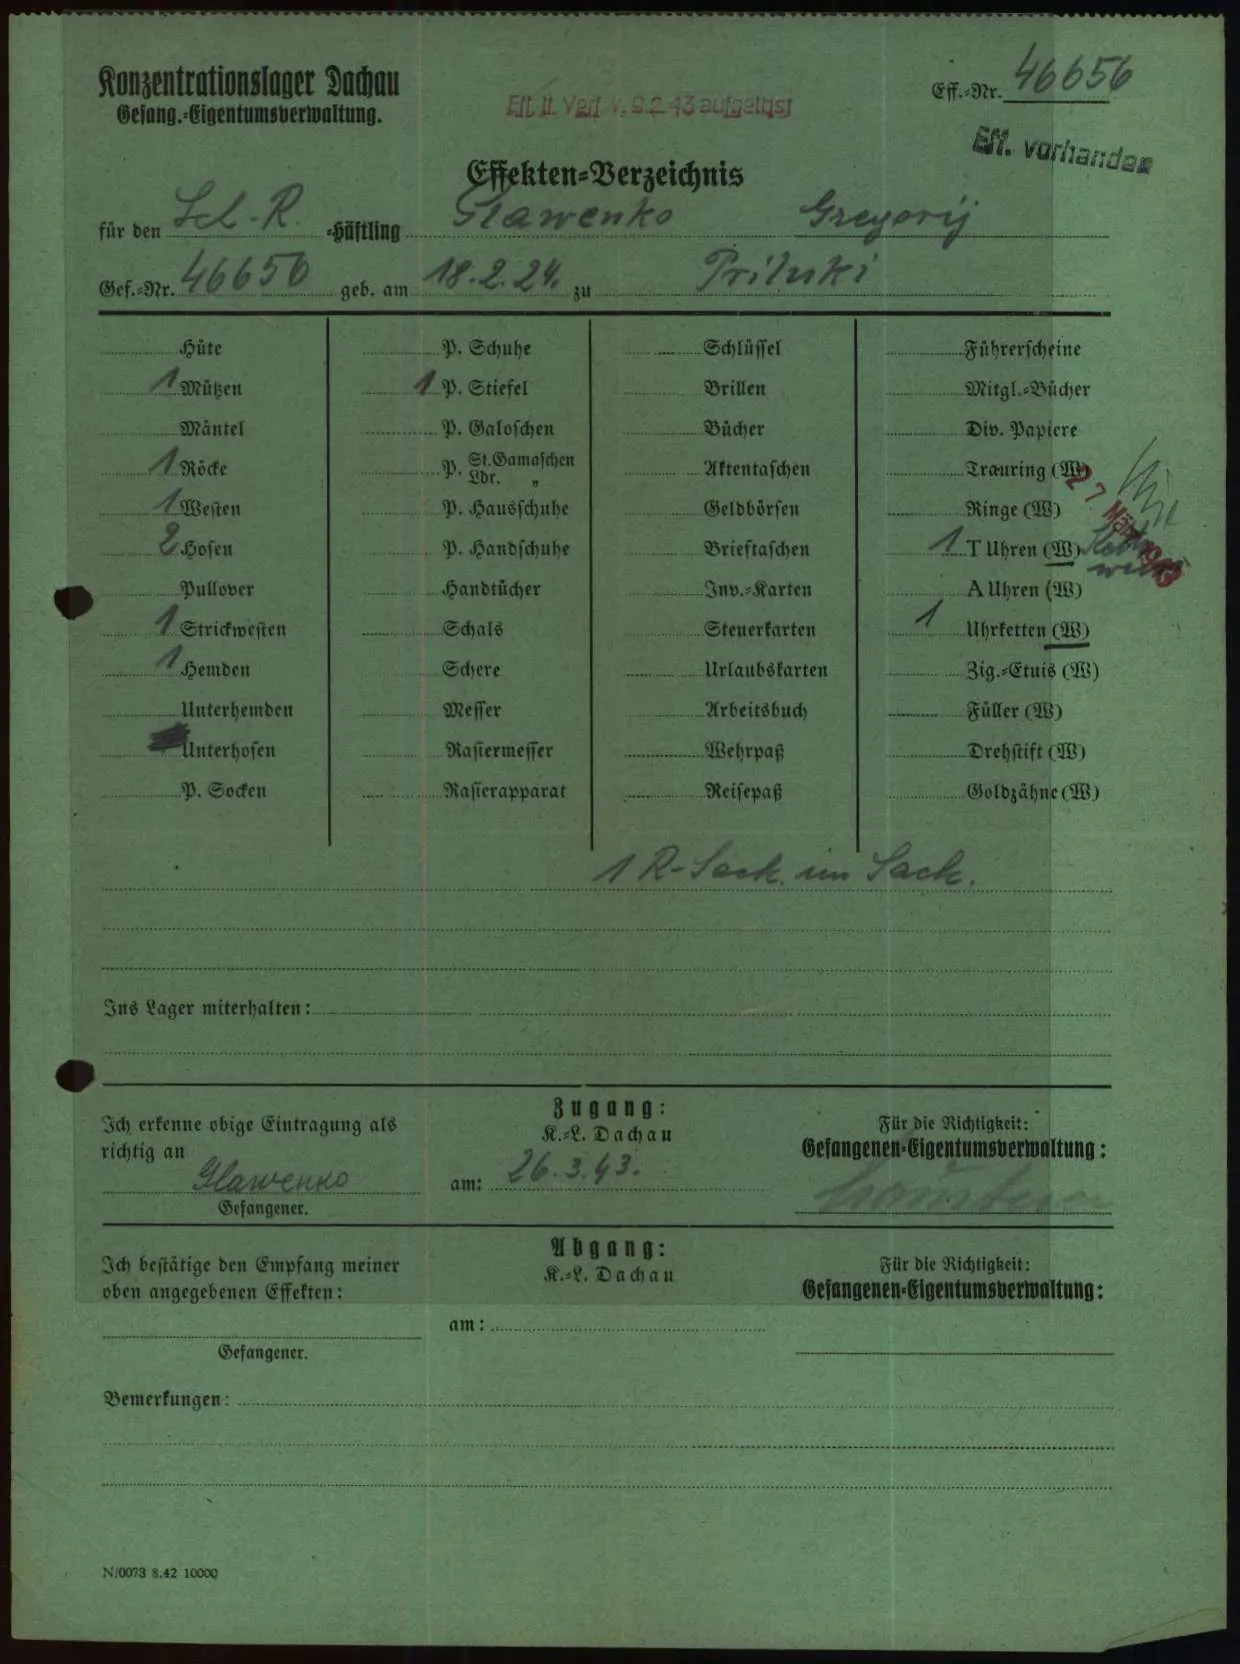 Konzentrationslager Dachau
Gefang.=Eigentumsverwaltung.
Eff. lt. Verf. v. 9.2.43 aufgelöst
Eff.=Nr. 46656
Eff. vorhanden
Effekten=Verzeichnis
für den Sch.-R. =Häftling Slawenko Gregorij
Gef.=Nr. 46656 geb. am 18.2.24. zu Priluki
Hüte
1 Mützen
Mäntel
1 Röcke
1 Westen
2 Hosen
Pullover
1 Strickwesten
1 Hemden
Unterhemden
Unterhosen
P. Socken
P. Schuhe
1 P. Stiefel
P. Galoschen
P. St.Gamaschen
Ldr. „
P. Hausschuhe
P. Handschuhe
Handtücher
Schals
Schere
Messer
Rasiermesser
Rasierapparat
Schlüssel
Brillen
Bücher
Aktentaschen
Geldbörsen
Brieftaschen
Inv.=Karten
Steuerkarten
Urlaubskarten
Arbeitsbuch
Wehrpaß
Reisepaß
Führerscheine
Mitgl.=Bücher
Div. Papiere
Trauring (W)
Ringe (W)
1 T Uhren (W)
A Uhren (W)
1 Uhrketten (W)
Zig.=Etuis (W)
Füller (W)
Drehstift (W)
Goldzähne (W)
27. März 1943
1 R-Sack. im Sack.
Ins Lager miterhalten:
Ich erkenne obige Eintragung als
richtig an
Slawenko
Gefangener.
Zugang:
K.=L. Dachau
am: 26.3.43.
Für die Richtigkeit:
Gefangenen=Eigentumsverwaltung:
Ich bestätige den Empfang meiner
oben angegebenen Effekten:
Gefangener.
Abgang:
K.=L. Dachau
am:
Für die Richtigkeit:
Gefangenen=Eigentumsverwaltung:
Bemerkungen:
N/0073 8.42 10000